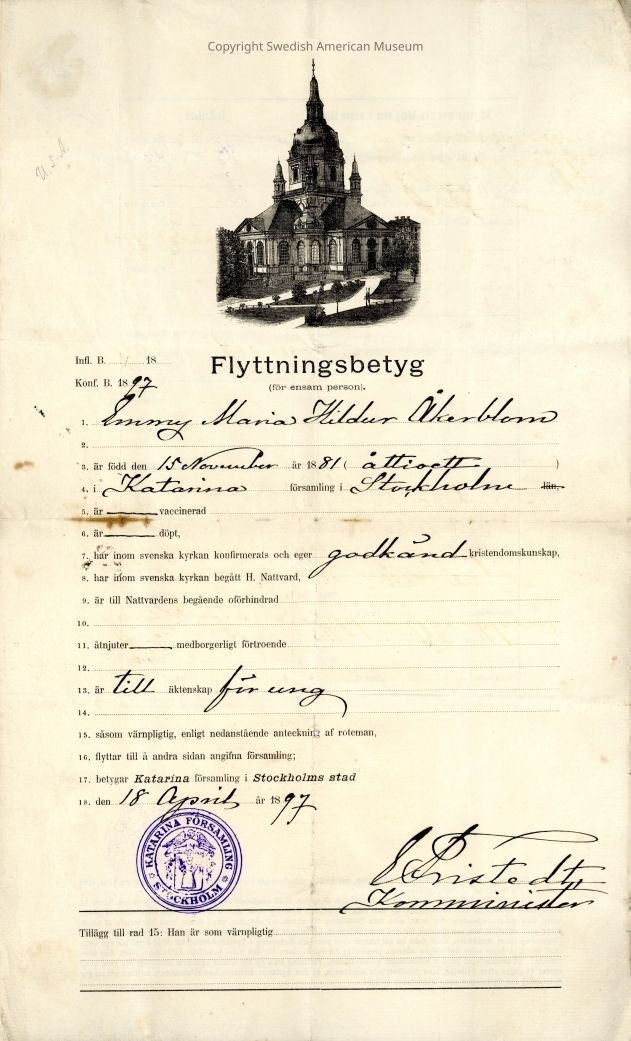 Copyright Swedish American Museum
U.S.A.
Infl. B. 18
Flyttningsbetyg
Konf. B. 1897
(för ensam person).
1. Emmy Maria Hildur Åkerblom
2.
3. är född den 15 November år 1881 ( åttioett )
4. i Katarina församling i Stockholm län,
5. är vaccinerad
6. är döpt,
7. har inom svenska kyrkan konfirmerats och eger godkänd kristendomskunskap,
8. har inom svenska kyrkan begått H. Nattvard,
9. är till Nattvardens begående oförhindrad
10.
11. åtnjuter medborgerligt förtroende
12.
13. är till äktenskap för ung
14.
15. såsom värnpligtig, enligt nedanstående anteckning af roteman,
16. flyttar till å andra sidan angifna församling;
17. betygar Katarina församling i Stockholms stad
18. den 18 April år 1897
KATARINA FÖRSAMLING
STOCKHOLM
E Pristedt
Komminister
Tillägg till rad 15: Han är som värnpligtig